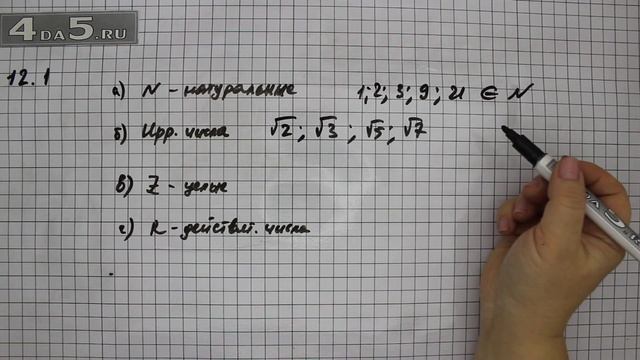 4DA5.RU
12.1
а) N - натуральные 1; 2; 3; 9; 21 ∈ N
б) Ирр. числа √2; √3; √5; √7
в) Z - целые
г) R - действит. числа